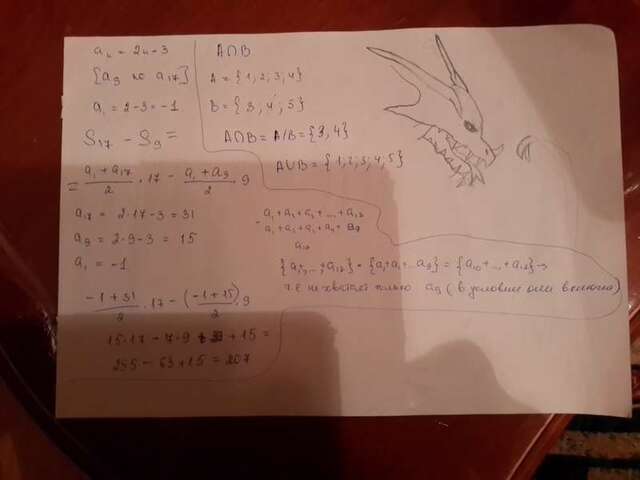 aₙ = 2n-3
[a₉ по a₁₇]
a₁ = 2-3 = -1
S₁₇ - S₉ =
= a₁ + a₁₇ / 2 · 17 - a₁ + a₉ / 2 · 9
a₁₇ = 2·17-3 = 31
a₉ = 2·9-3 = 15
a₁ = -1
-1+31 / 2 · 17 - (-1+15 / 2) · 9
15·17 - 7·9 + 15 =
255 - 63 + 15 = 207
A∩B
A = {1; 2; 3; 4}
B = {3; 4; 5}
A∩B = A/B = {3, 4}
A∪B = {1, 2, 3, 4, 5}
- a₁ + a₂ + a₃ + ... + a₁₇
a₁ + a₂ + a₃ + a₄ +
a₁₀
{a₁ + ... + a₁₇} - {a₁ + a₂ + ... a₉} = {a₁₀ + ... + a₁₇} →
т.е не хватает только a₉ (в условие они включили)